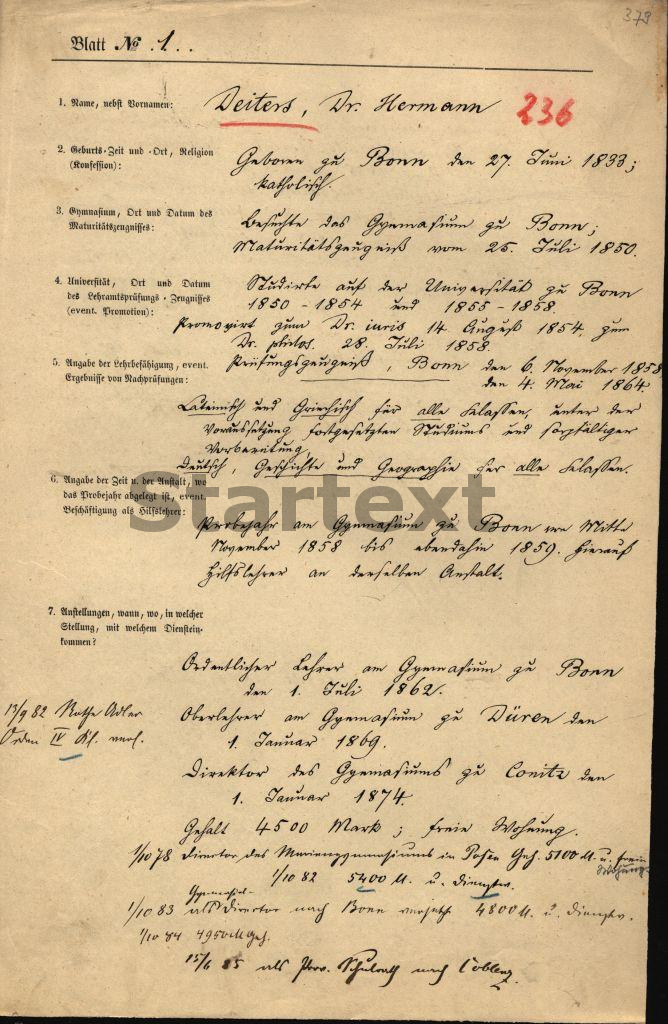 379
Blatt № 1.
1. Name, nebst Vornamen: Deiters, Dr. Hermann 236
2. Geburts-Zeit und -Ort, Religion (Konfession): Geboren zu Bonn den 27. Juni 1833;
katholisch.
3. Gymnasium, Ort und Datum des Maturitätszeugnisses: Besuchte das Gymnasium zu Bonn;
Maturitätszeugniß vom 25. Juli 1850.
4. Universität, Ort und Datum des Lehramtsprüfungs-Zeugnisses (event. Promotion): Studirte auf der Universität zu Bonn
1850 - 1854 und 1855 - 1858.
Promovirt zum Dr. iuris 14. August 1854, zum
Dr. philos. 28. Juli 1858.
5. Angabe der Lehrbefähigung, event. Ergebnisse von Nachprüfungen: Prüfungszeugniß, Bonn den 6. November 1858
den 4. Mai 1864.
Lateinisch und Griechisch für alle Klassen, unter der
Voraussetzung fortgesetzten Studiums und sorgfältiger
Vorbereitung
Deutsch, Geschichte und Geographie für alle Klassen.
6. Angabe der Zeit u. der Anstalt, wo das Probejahr abgelegt ist, event. Beschäftigung als Hilfslehrer:
Startext
Probejahr am Gymnasium zu Bonn von Mitte
November 1858 bis ebendahin 1859. Hierauf
Hilfslehrer an derselben Anstalt.
7. Anstellungen, wann, wo, in welcher Stellung, mit welchem Diensteinkommen?
Ordentlicher Lehrer am Gymnasium zu Bonn
den 1. Juli 1862.
13/9 82 Rothe Adler
Orden IV Kl. verl.
Oberlehrer am Gymnasium zu Düren den
1. Januar 1869.
Direktor des Gymnasiums zu Conitz den
1. Januar 1874.
Gehalt 4500 Mark; freie Wohnung.
1/10 78 Director des Mariengymnasiums in Posen Geh. 5100 M. u. freie
Wohnung
1/10 82 5400 M. u. Dienstw.
Gymnasial-
1/10 83 als Director nach Bonn versetzt 4800 M. u. Dienstw.
1/10 84 4950 M Geh.
15/6 85 als Prov. Schulrath nach Coblenz.